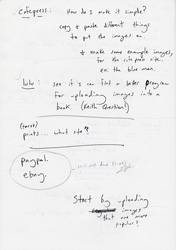 Cafepress: How do I make it simple?
copy & paste different things
to put the images on
& make some example images,
for the cafepress site.
ex. the blue man.
lulu: see if i can find a better program
for uploading images into a
book. (Keith Question!)
(tarot)
prints... what site?
paypal.
ebay.
Start by uploading
images
that are more
popular?